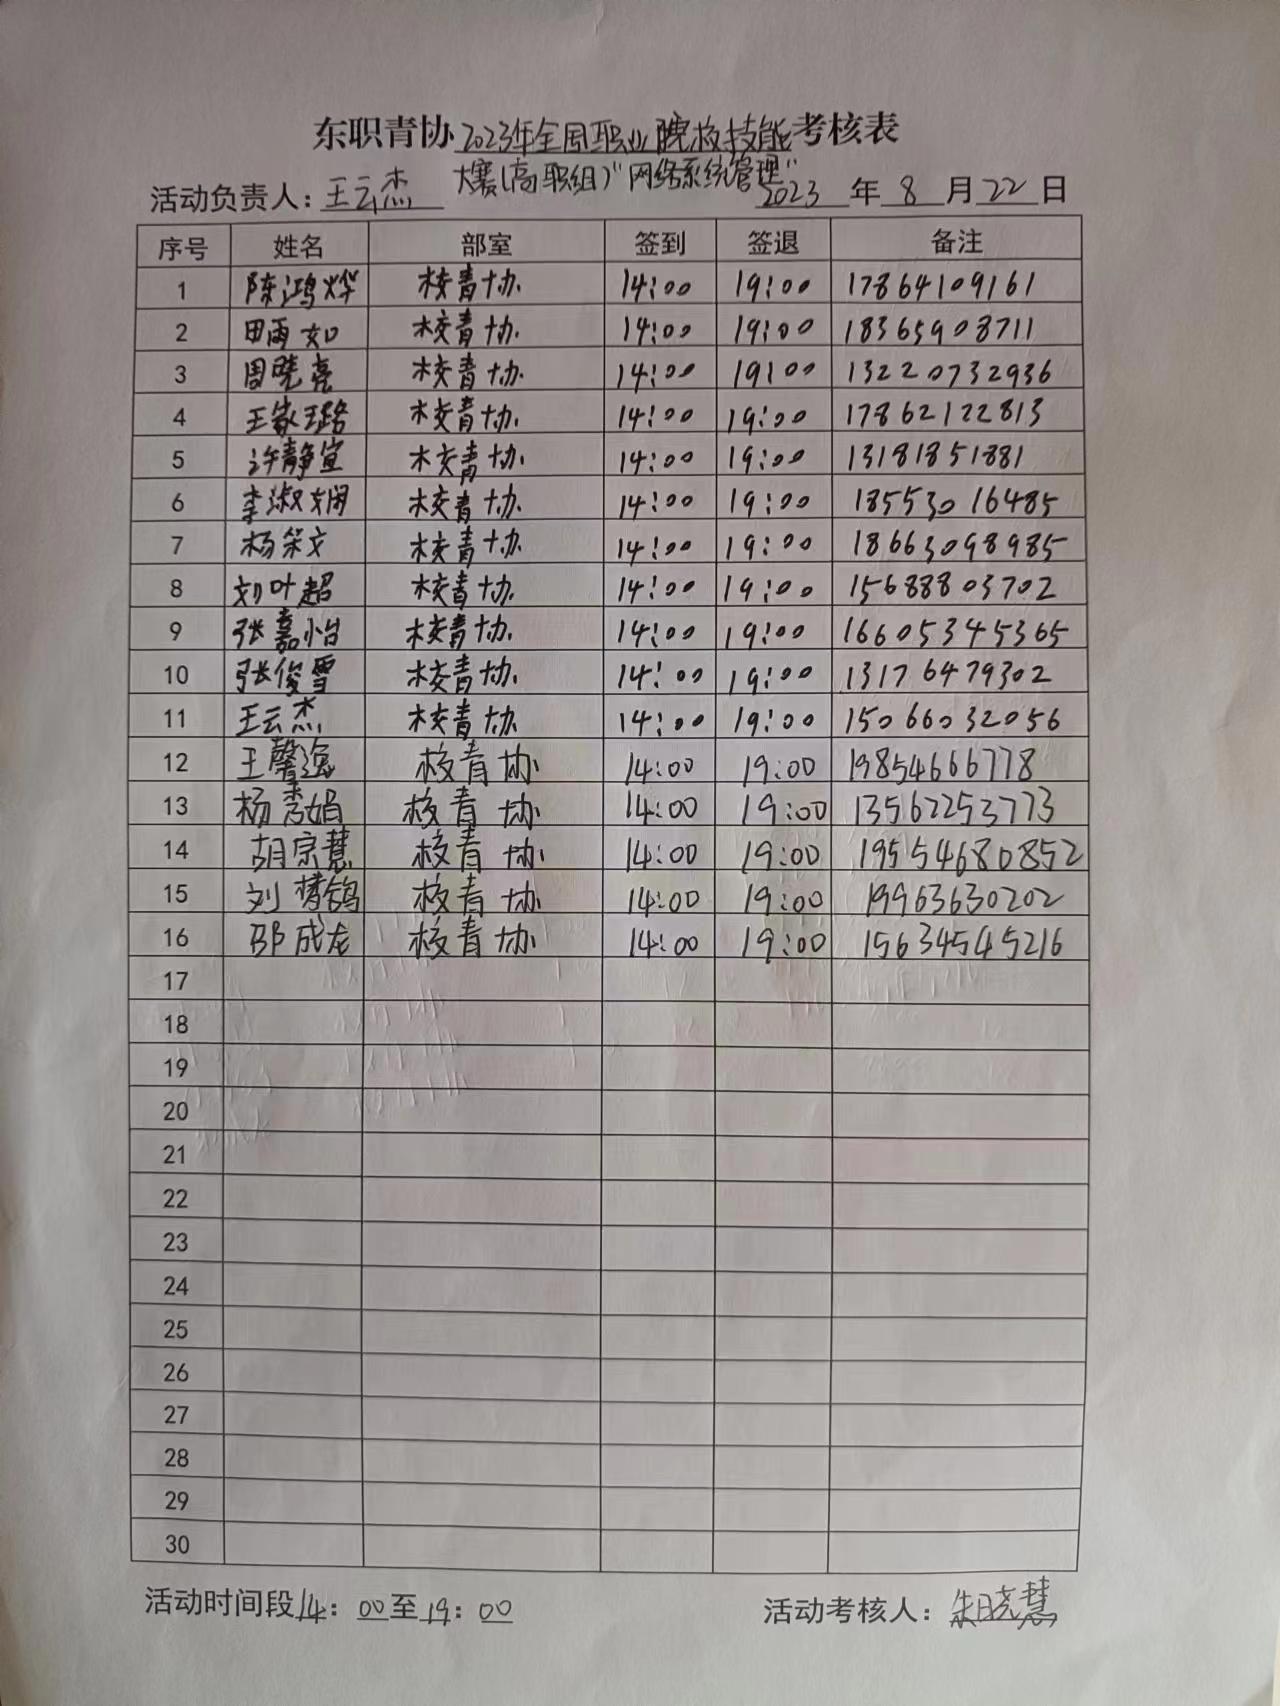 东职青协2023年全国职业院校技能考核表
大赛(高职组)"网络系统管理"
活动负责人：王云杰 2023年8月22日
序号 姓名 部室 签到 签退 备注
1 陈鸿烨 校青协 14:00 19:00 17864109161
2 田雨如 校青协 14:00 19:00 18365908711
3 周晓亮 校青协 14:00 19:00 13220732936
4 王家璐 校青协 14:00 19:00 17862122813
5 许静宣 校青协 14:00 19:00 13181851881
6 李淑娴 校青协 14:00 19:00 18553016485
7 杨 校青协 14:00 19:00 18663098985
8 刘叶超 校青协 14:00 19:00 15688803702
9 张嘉怡 校青协 14:00 19:00 16605345365
10 张俊雪 校青协 14:00 19:00 13176479302
11 王云杰 校青协 14:00 19:00 15066032056
12 王馨逸 校青协 14:00 19:00 19854666778
13 杨秀娟 校青协 14:00 19:00 13562253773
14 胡宗慧 校青协 14:00 19:00 19554680852
15 刘梦鸽 校青协 14:00 19:00 19963630202
16 邵成龙 校青协 14:00 19:00 15634545216
17
18
19
20
21
22
23
24
25
26
27
28
29
30
活动时间段14：00至19：00 活动考核人：朱晓慧